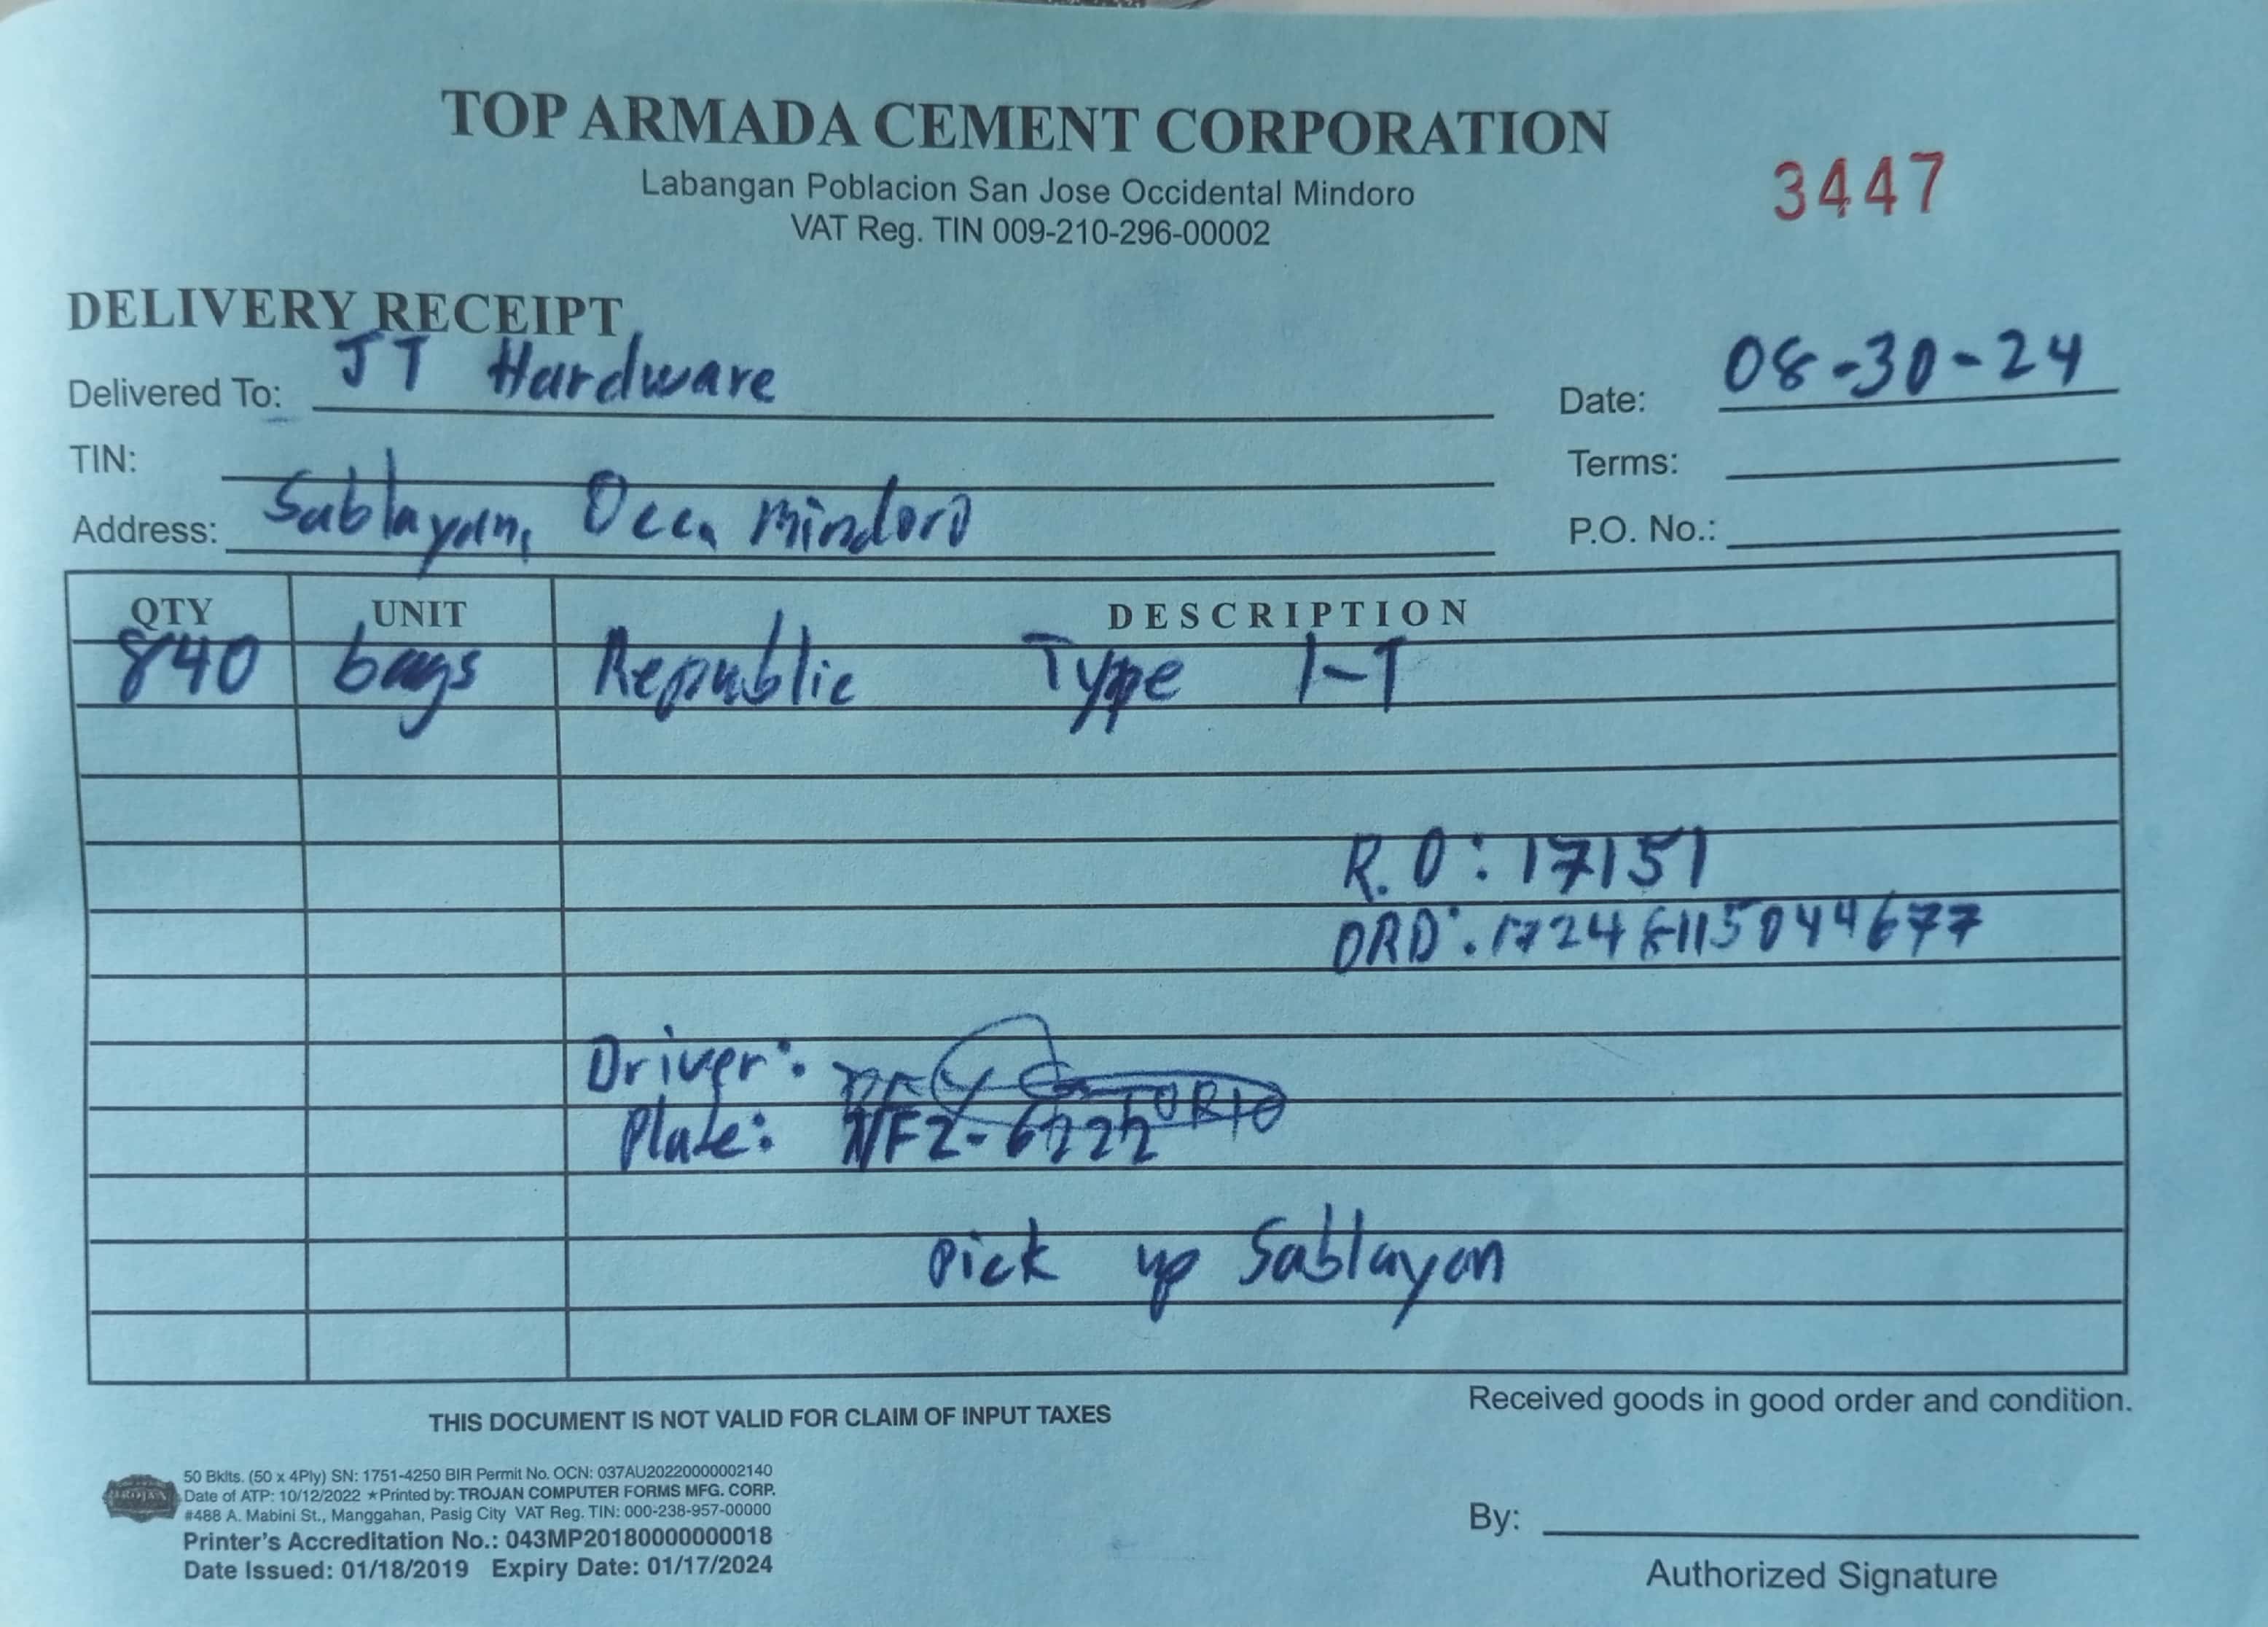 TOP ARMADA CEMENT CORPORATION
Labangan Poblacion San Jose Occidental Mindoro
VAT Reg. TIN 009-210-296-00002
3447
DELIVERY RECEIPT
Delivered To: JT Hardware
Date: 08-30-24
TIN:
Terms:
Address: Sablayan, Occ. Mindoro
P.O. No.:
QTY UNIT DESCRIPTION
840 bags Republic Type 1-T
R.O: 17151
ORD: 17248115044677
Driver:
Plate: NFZ-6222
Pick up Sablayan
THIS DOCUMENT IS NOT VALID FOR CLAIM OF INPUT TAXES
Received goods in good order and condition.
TROJAN
50 Bklts. (50 x 4Ply) SN: 1751-4250 BIR Permit No. OCN: 037AU20220000002140
Date of ATP: 10/12/2022 ★Printed by: TROJAN COMPUTER FORMS MFG. CORP.
#488 A. Mabini St., Manggahan, Pasig City VAT Reg. TIN: 000-238-957-00000
Printer's Accreditation No.: 043MP20180000000018
Date Issued: 01/18/2019 Expiry Date: 01/17/2024
By:
Authorized Signature